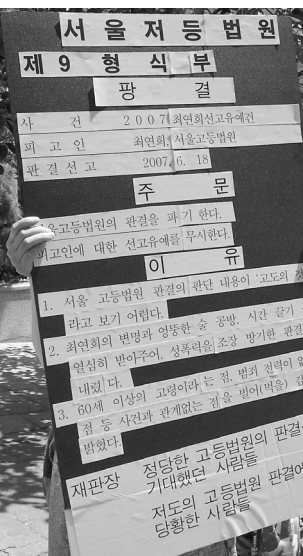 서울저등법원
제 9 형 식 부
팡 결
사 건 2 0 0 7 최연희선고유예건
피 고 인 최연희, 서울고등법원
판 결 선 고 2007. 6. 18
주 문
울고등법원의 판결을 파기 한다.
피고인에 대한 선고유예를 무시한다.
이 유
1. 서울 고등법원 판결의 판단 내용이 '고도의
라고 보기 어렵다.
2. 최연희의 변명과 엉뚱한 술 공방, 시간 끌기
열심히 받아주어, 성폭력을 조장 방기한 판결
내렸다.
3. 60세 이상의 고령이라는 점, 범죄 전력이
점 등 사건과 관계없는 점을 빌어(먹을)
밝혔다.
재판장 정당한 고등법원의 판결
기대했던 사람들
저도의 고등법원 판결에
당황한 사람들